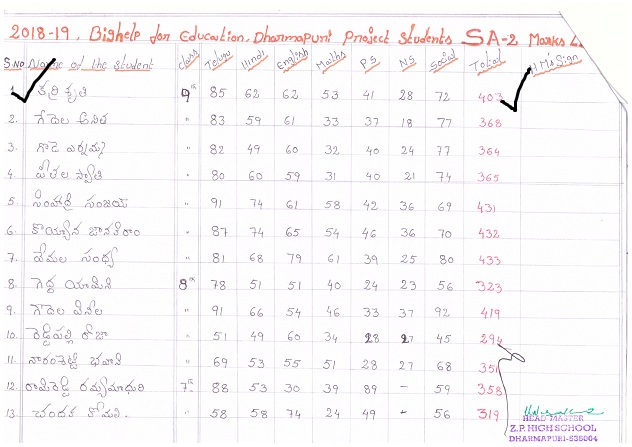 2018-19, Bighelp for Education, Dharmapuri Project Students SA-2 Marks
S.No Name of the Student Class Telugu Hindi English Maths P.S N.S Social Total H.M's Sign
1. కర్రి కృతి 9th 85 62 62 53 41 28 72 403
2. గేదెల అనిత " 83 59 61 33 37 18 77 368
3. " 82 49 60 32 40 24 77 364
4. " 80 60 59 31 40 21 74 365
5. సింహాద్రి సంజయ్ " 91 74 61 58 42 36 69 431
6. కొయ్యాన జానకిరాం " 87 74 65 54 46 36 70 432
7. వేమల సంధ్య " 81 68 79 61 39 25 80 433
8. గెద్ద యామిని 8th 78 51 51 40 24 23 56 323
9. " 91 66 54 46 33 37 92 419
10. రెడ్డిపల్లి రోజా " 51 49 60 34 28 27 45 294
11. భవాని " 69 53 55 51 28 27 68 351
12. రామిరెడ్డి రమ్యమాధురి 7th 88 53 30 39 89 - 59 358
13. చందక " 58 58 74 24 49 - 56 319
HEAD MASTER
Z.P. HIGH SCHOOL
DHARMAPURI-535004